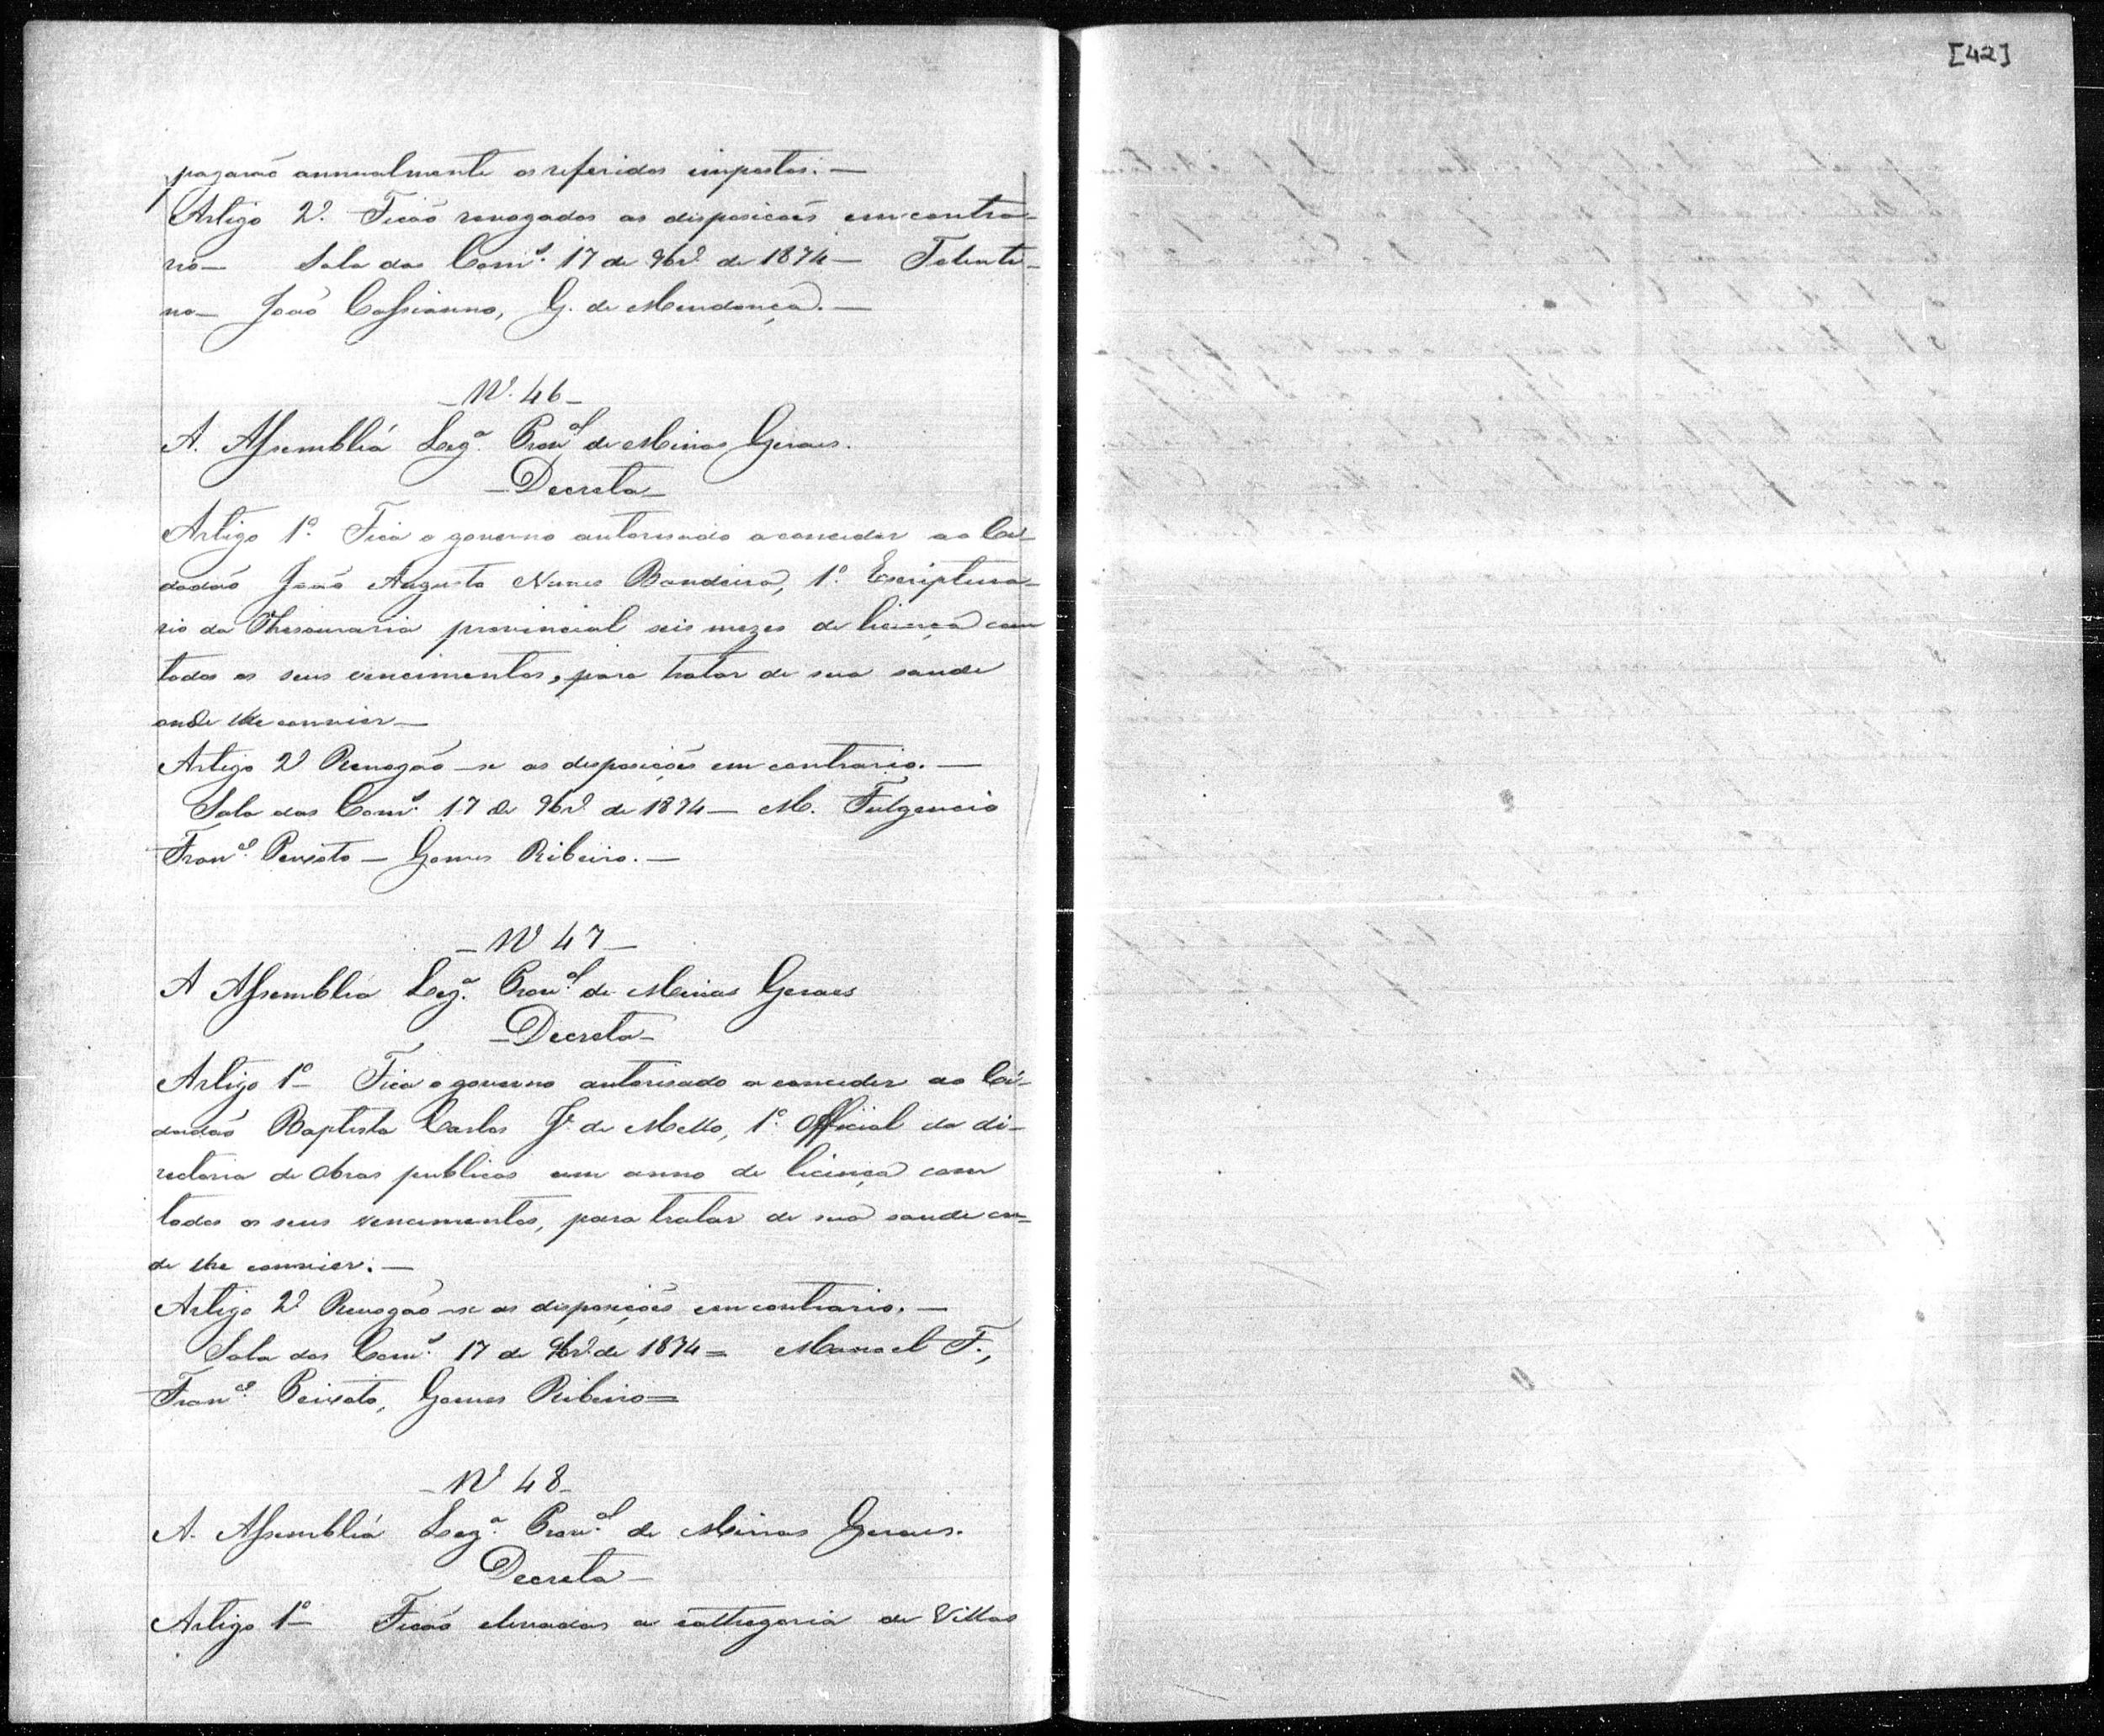 pagarão annualmente os referidos impostos. —
Artigo 2º. Ficão revogadas as disposicoẽs em contra-
rio — Sala das Comº. 17 de 9brº de 1874 — Tolenti-
no — João Cassianno, G. de Mendonça. —
— Nº. 46 —
A. Assembléa Legª. Provᵃˡ de Minas Geraes.
— Decreta —
Artigo 1º. Fica o governo autorisado a conceder ao Ci-
dadão João Augusto Nunes Bandeira, 1º. Escriptura-
rio da Thesouraria provincial seis mezes de licença com
todos os seus vencimentos, para tratar de sua saude
onde lhe convier —
Artigo 2º Revogão-se as disposições em contrario. —
Sala das Comˢ. 17 de 9brº de 1874 — M. Fulgencio
Franᶜᵒ. Peixoto — Gomes Ribeiro. —
— Nº 47 —
A Assemblea Legª. Provᵃˡ. de Minas Geraes
— Decreta —
Artigo 1º — Fica o governo autorisado a conceder ao Ci-
dadão Baptista Carlos Jᵉ de Mello, 1º. Official da di-
rectoria de obras publicas um anno de licença com
todos os seus vencimentos, para tratar de sua saude on-
de lhe convier. —
Artigo 2º Revogão-se as disposições em contrario. —
Sala das Comˢ. 17 de 9brº de 1874 = Manoel F.,
Franᶜᵒ. Peixoto, Gomes Ribeiro =
— Nº 48 —
A. Assembléa Legª. Provᵃˡ. de Minas Geraes.
Decreta —
Artigo 1º — Ficão elevadas a cathegoria de Villas
[42]